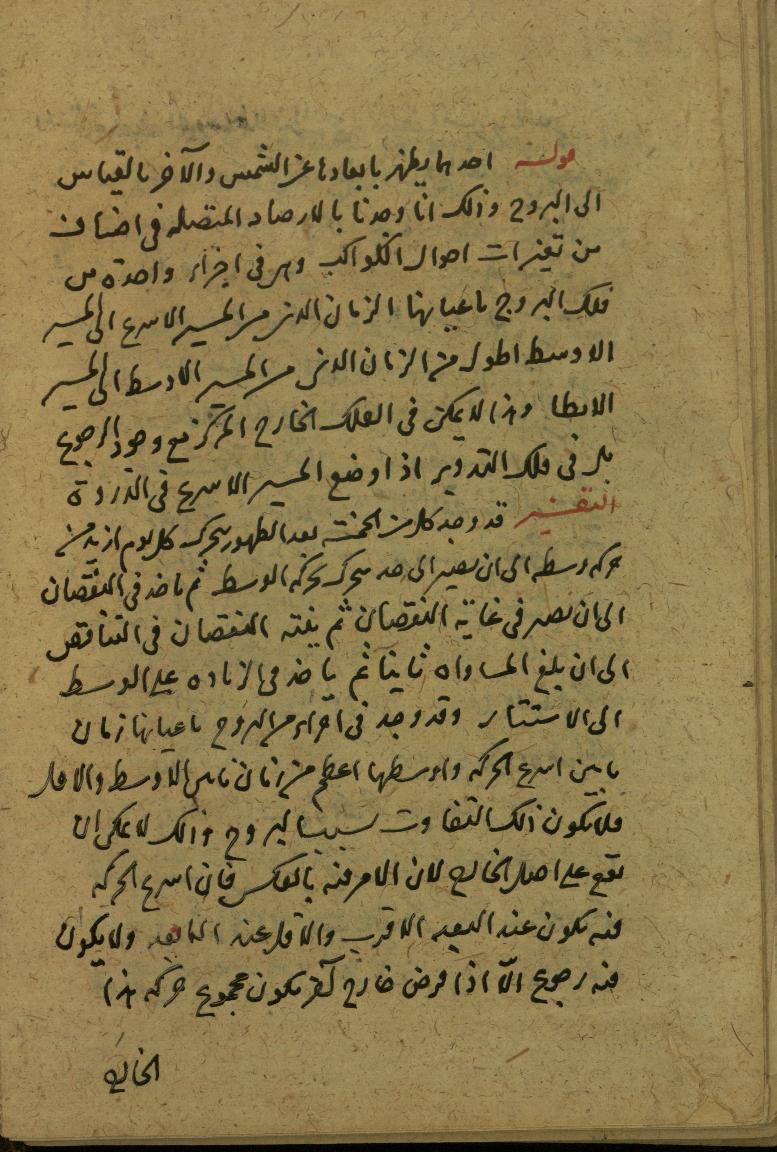 قوله احدهما يظهر بابعادها عن الشمس والآخر بالقياس
الى البروج وذلك انا وجدنا بالارصاد المتصلة فى اصناف
من تغيرات احوال الكواكب وهى فى اجزاء واحدة من
فلك البروج باعيانها الزمان الذى من المسير الاسرع الى المسير
الاوسط اطول من الزمان الذى من المسير الاوسط الى المسير
الابطا وهذا لا يمكن فى الفلك الخارج المركز مع وجود الرجوع
بل فى فلك التدوير اذا وضع المسير الاسرع فى الذروة
التفسير قد وجد كل من الخمسة بعد الظهور يتحرك كل يوم ازيد من
حركه وسطه الى ان يصير الى حد يتحرك بحركه الوسط ثم ياخذ فى النقصان
الى ان يصير فى غاية النقصان ثم يفته النقصان فى التناقص
الى ان يلغ المساواه ثانيا ثم ياخذ فى الزياده على الوسط
الى الاستتار وقد وجد فى اجزاء من البروج باعيانها زمان
ما بين اسرع الحركه واوسطها اعظم من زمان ما بين الاوسط والاقل
فلا يكون ذلك التفاوت بسبب البروج وذلك لا يمكن ان
يقع على اصل الخارج لان الامر فيه بالعكس فان اسرع الحركه
فيه يكون عند البعد الاقرب والاقل عند الابعد ولا يكون
فيه رجوع الّا اذا فرض خارج آخر يكون مجموع حركه هذا
الخارج